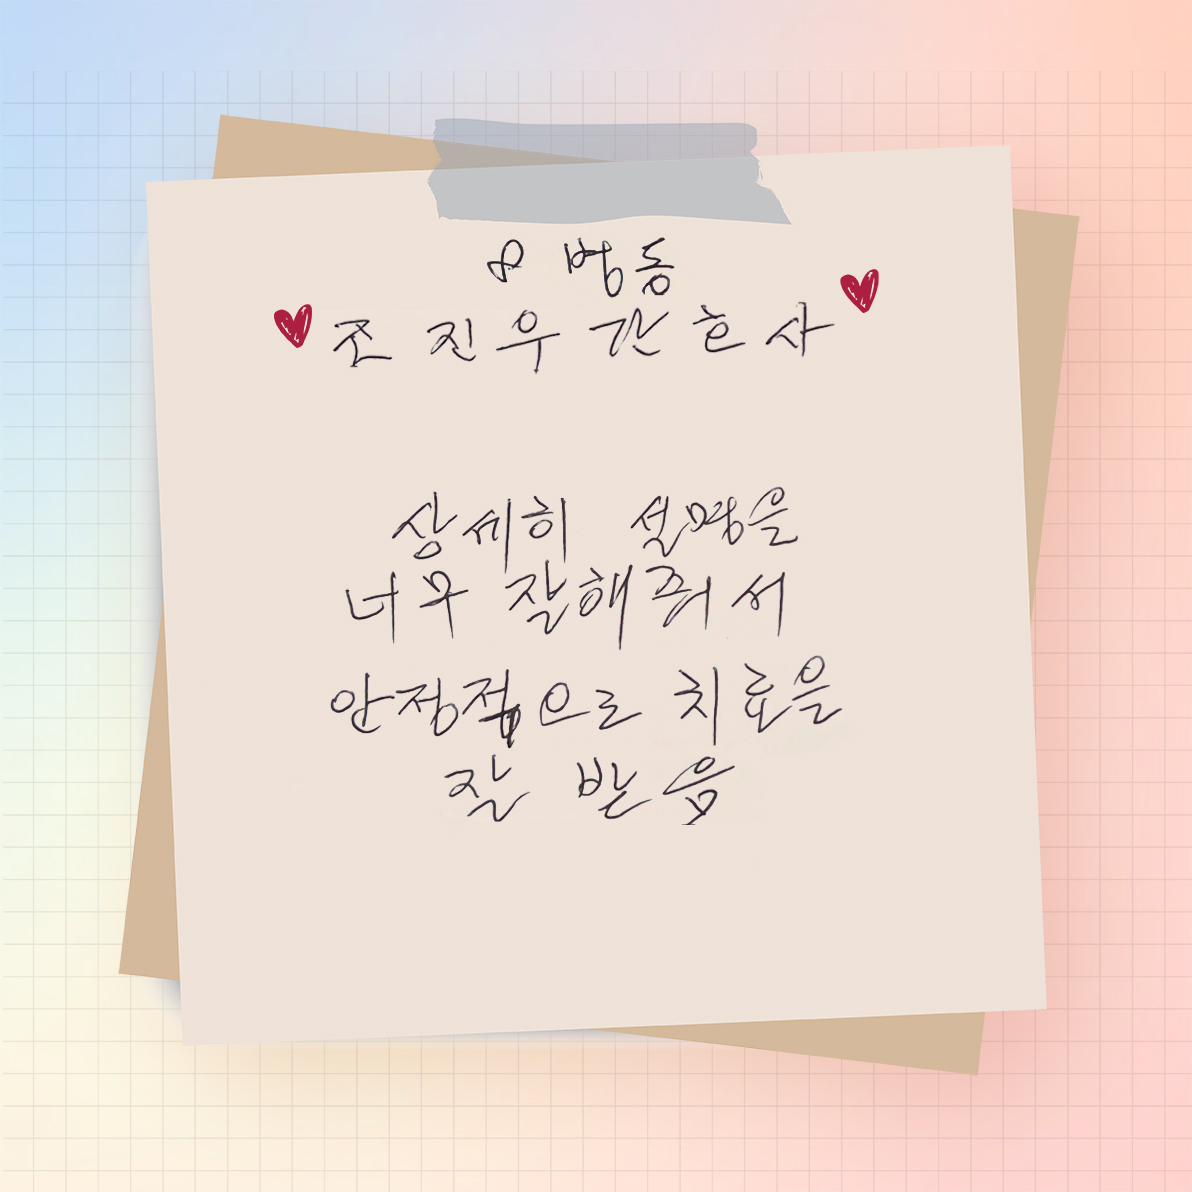 8 병동
조 진우 간호사
상세히 설명을
너무 잘해줘서
안정적으로 치료을
잘 받음